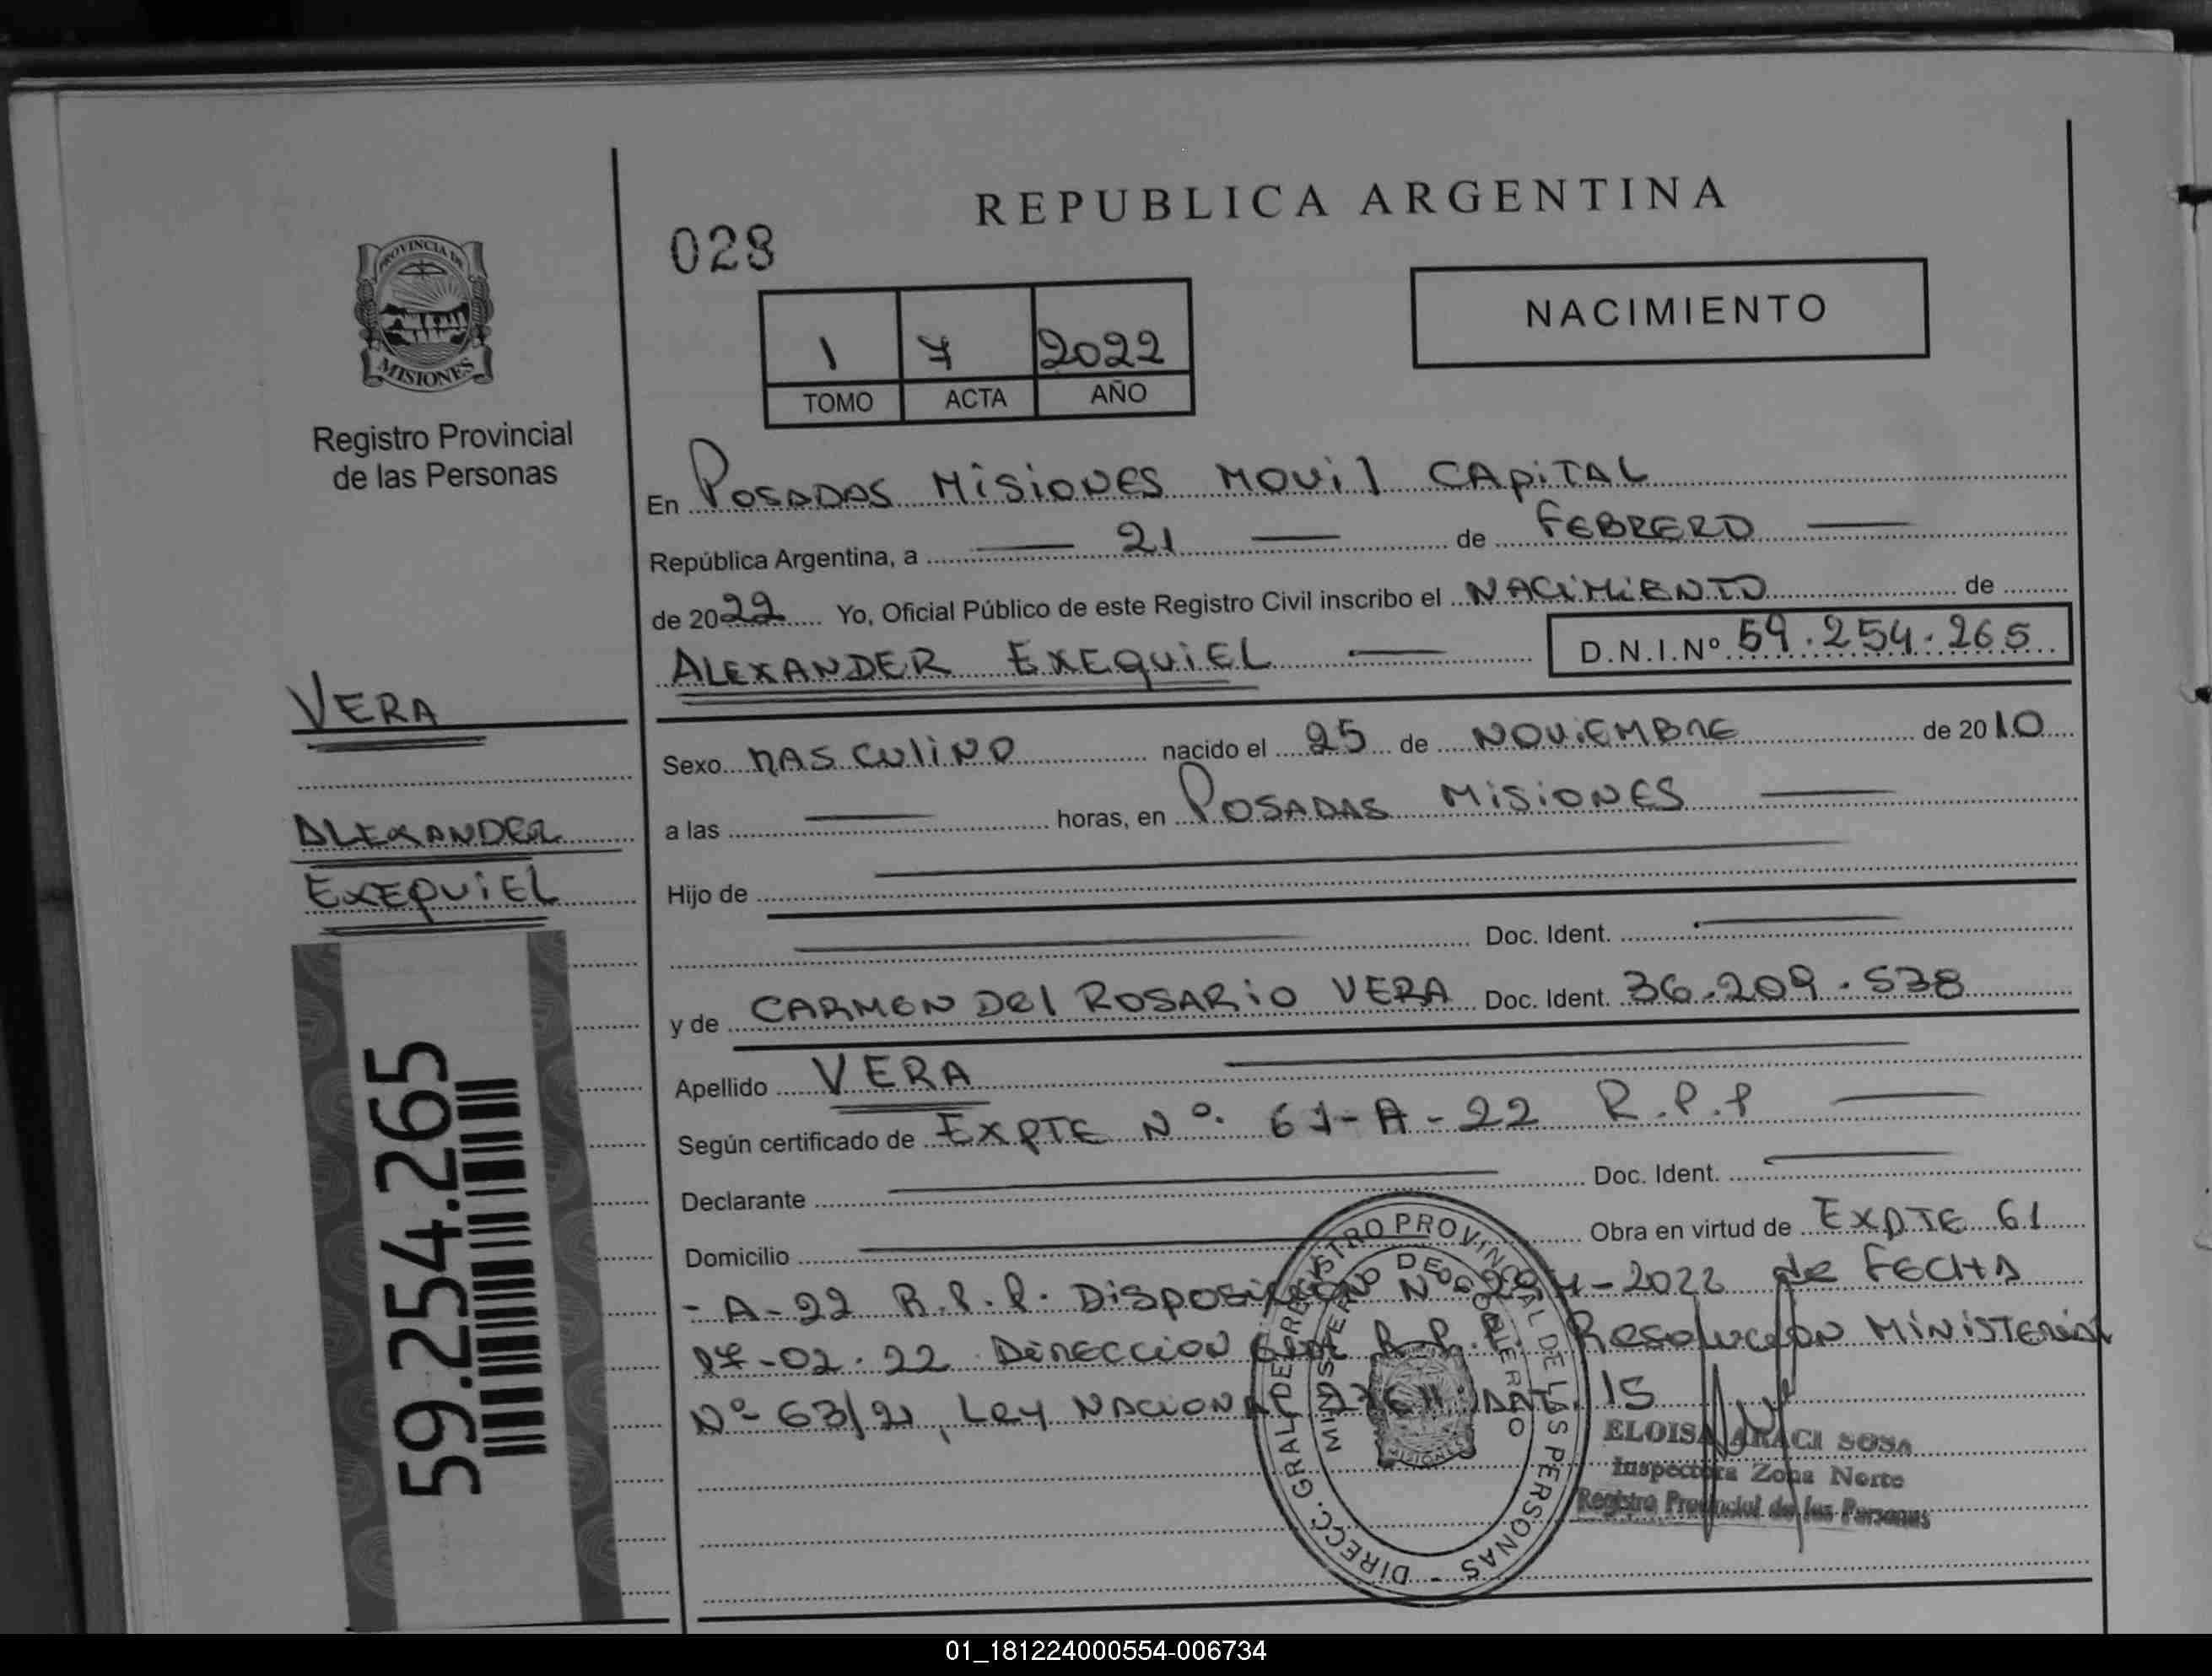 REPUBLICA ARGENTINA
028
PROVINCIA DE
MISIONES
Registro Provincial
de las Personas
1 7 2022
TOMO ACTA AÑO
NACIMIENTO
En POSADAS MISIONES MOVIL CAPITAL
República Argentina, a 21 de FEBRERO
de 2022 Yo, Oficial Público de este Registro Civil inscribo el NACIMIENTO de
ALEXANDER EXEQUIEL D.N.I.Nº 59.254.265
VERA
ALEXANDER
EXEQUIEL
59.254.265
Sexo MASCULINO nacido el 25 de NOVIEMBRE de 2010
a las horas, en POSADAS MISIONES
Hijo de
Doc. Ident.
y de CARMEN DEL ROSARIO VERA Doc. Ident. 36.209.538
Apellido VERA
Según certificado de EXPTE Nº 61-A-22 R.P.P
Declarante Doc. Ident.
Domicilio Obra en virtud de EXPTE 61
-A-22 R.P.P. DISPOSICION Nº -2022 de FECHA
17-02-22 DIRECCION R.P.P. Resolucion MINISTERIAL
Nº 63/21, Ley NACIONAL 15
DIRECC. GRAL DEL REGISTRO PROVINCIAL DE LAS PERSONAS -
MINISTERIO DE GOBIERNO
MISIONES
ELOISA ARACI SOSA
Inspectora Zona Norte
Registro Provincial de las Personas
01_181224000554-006734